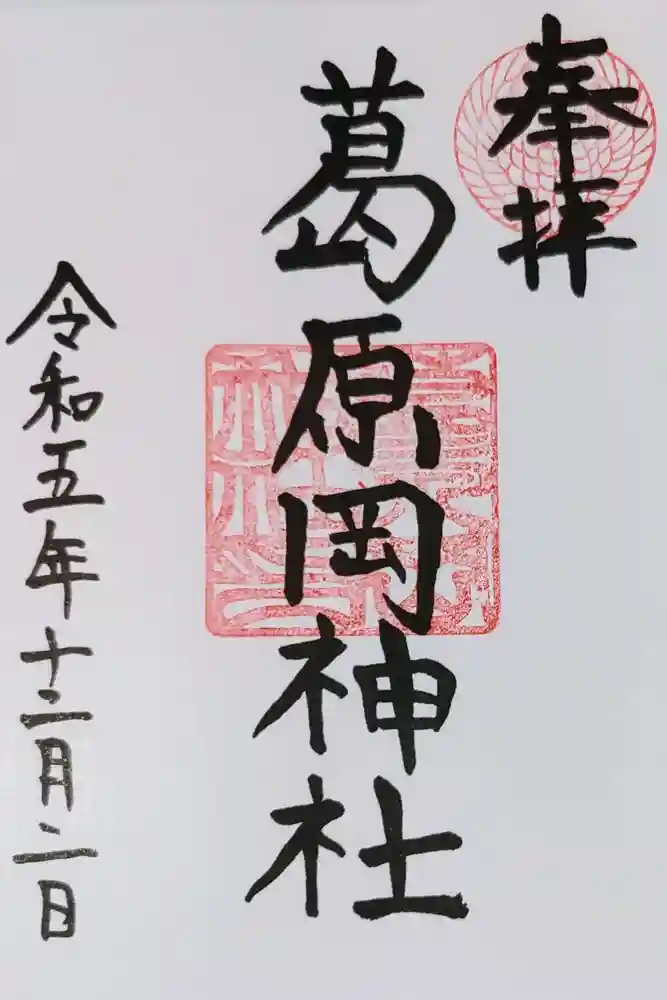 奉拝
葛原岡神社
令和五年十二月二日